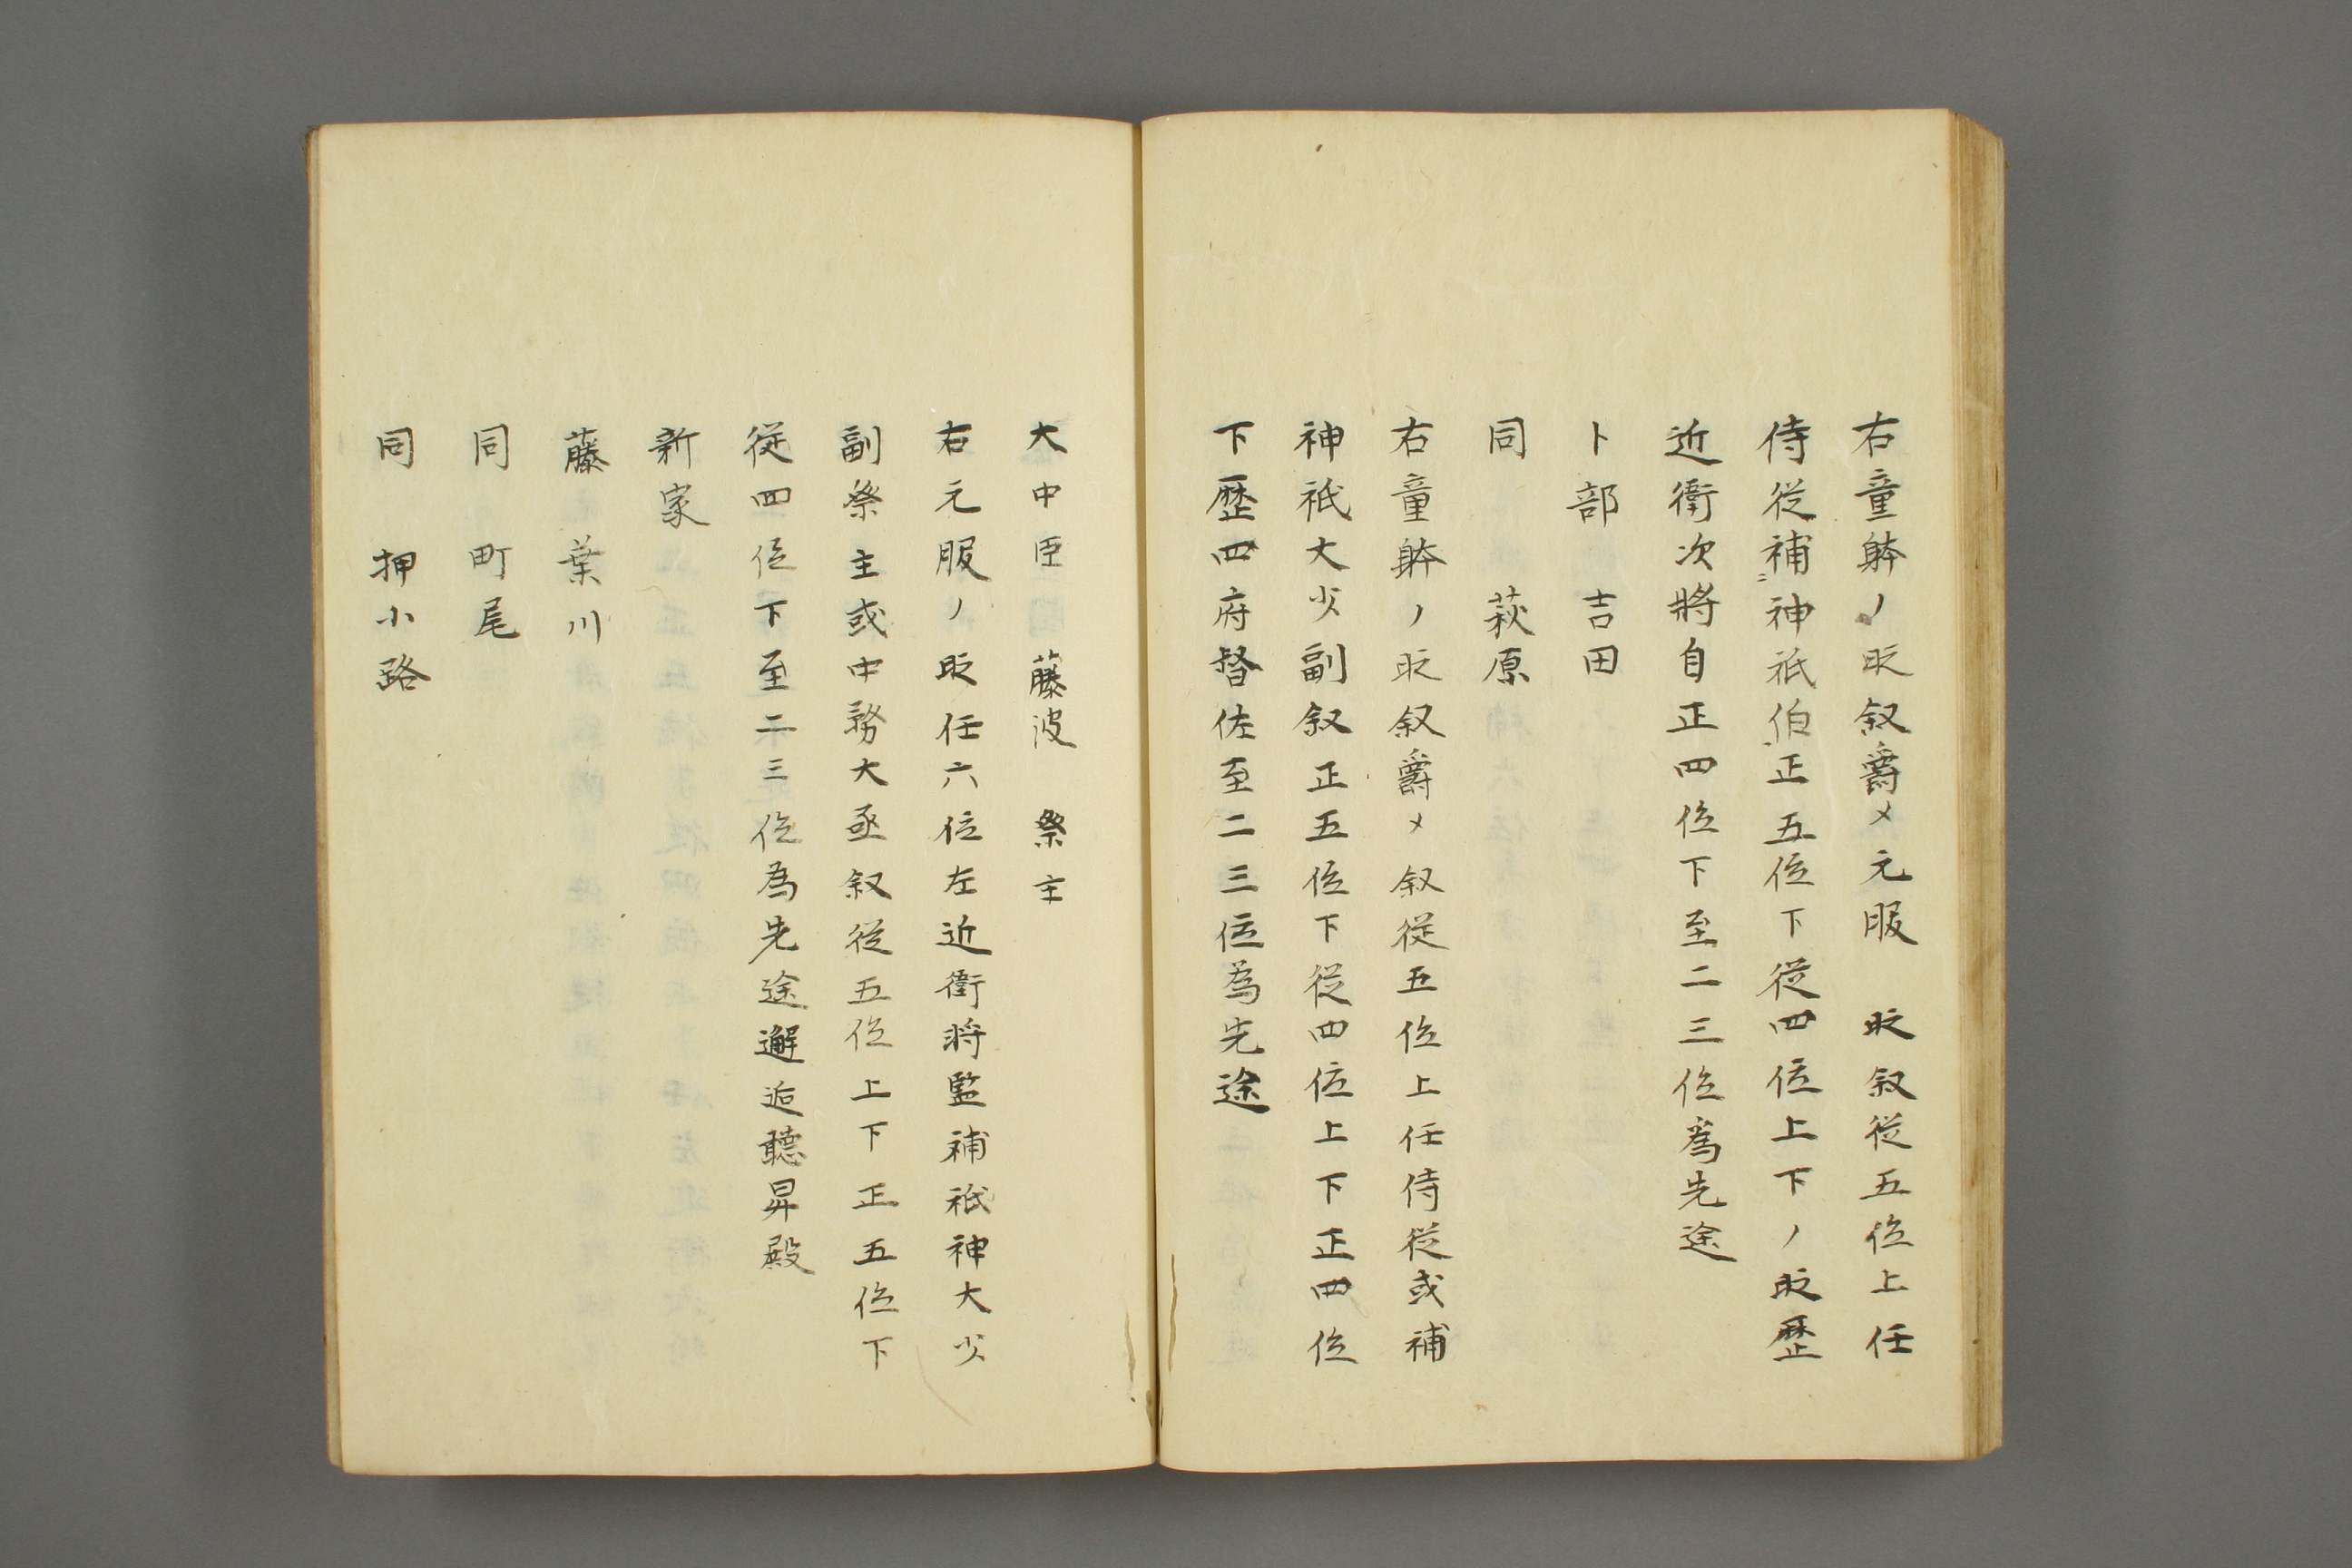 右童躰ノ昵叙爵〆元服　昵叙従五位上任
侍従補神祇伯正五位下従四位上下ノ昵歴
近衛次將自正四位下至二三位為先途
卜部　吉田
同　萩原
右童躰ノ昵叙爵〆叙従五位上任侍従或補
神祇大少副叙正五位下従四位上下正四位
下歴四府督佐至二三位為先途
大中臣　藤波　祭主
右元服ノ昵任六位左近衛將監補祇神大少
副祭主或中務大丞叙従五位上下正五位下
従四位下至二三位為先途邂逅聴昇殿
新家
藤　葉川
同　町尾
同　押小路